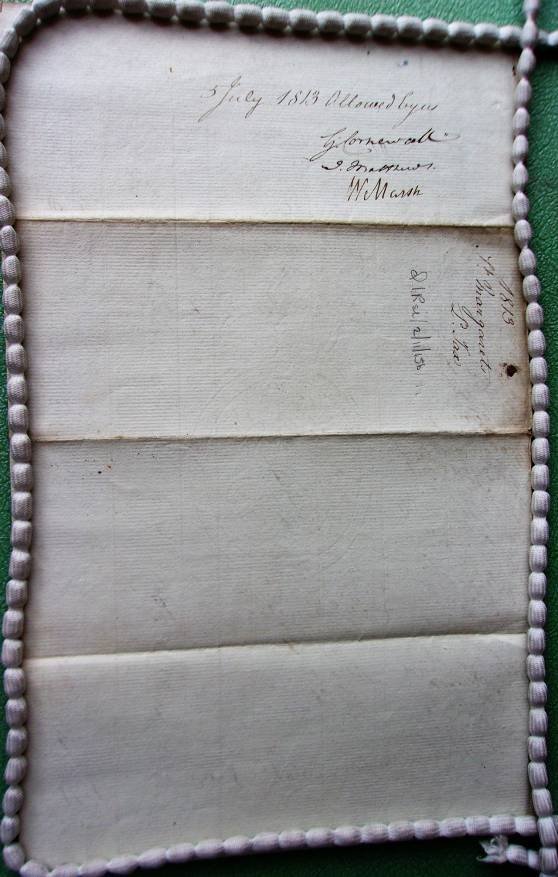 5 July 1813 Allowed by us
G Cornewall
J. Matthews.
W Marsh
1813
St Margarets
Lp. Tax
Q/REL/2/11/15b